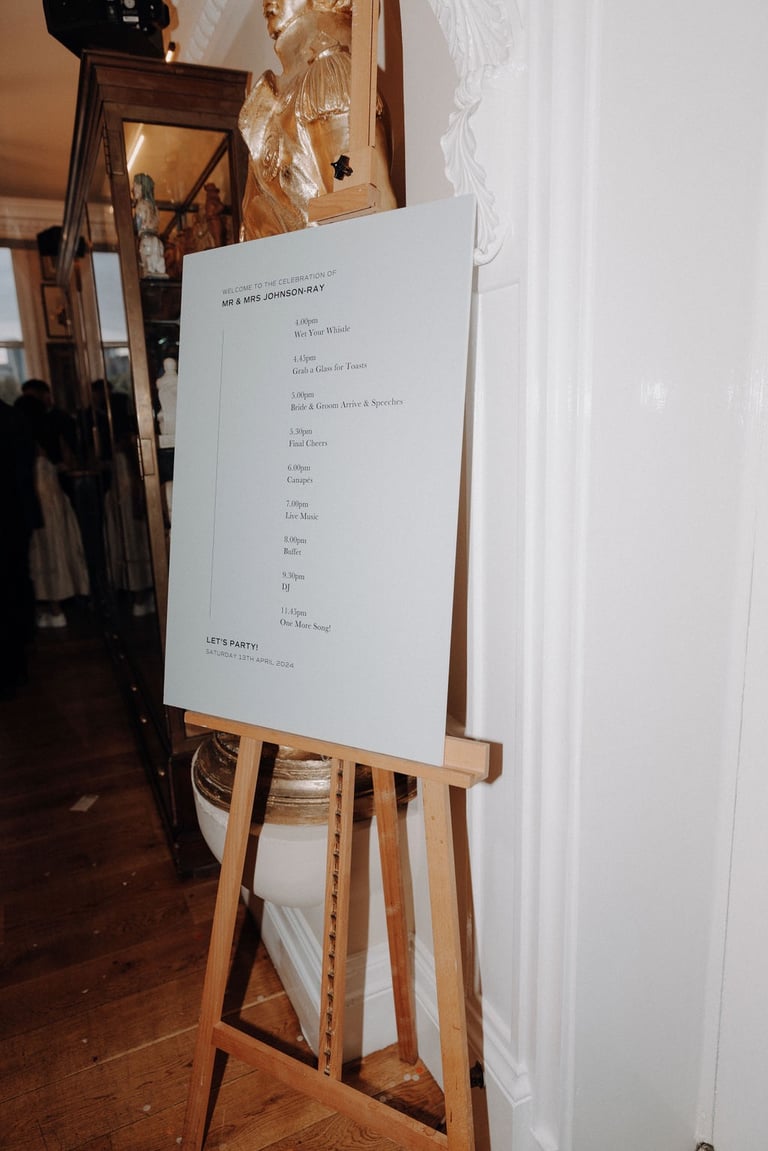 WELCOME TO THE CELEBRATION OF
MR & MRS JOHNSON-RAY
4.00pm
Wet Your Whistle
4.45pm
Grab a Glass for Toasts
5.00pm
Bride & Groom Arrive & Speeches
5.30pm
Final Cheers
6.00pm
Canapés
7.00pm
Live Music
8.00pm
Buffet
9.30pm
DJ
11.45pm
One More Song!
LET'S PARTY!
SATURDAY 13TH APRIL 2024